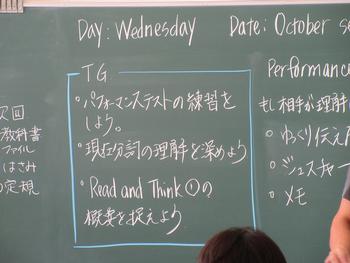 Day: Wednesday Date: October
TG
・パフォーマンステストの練習を
しよう。
・現在分詞の理解を深めよう
・Read and Think ①の
概要を捉えよう
次回
教科書
ファイル
はさみ
定規
Performance
もし相手が理解
・ゆっくり伝え
・ジェスチャー
・メモ